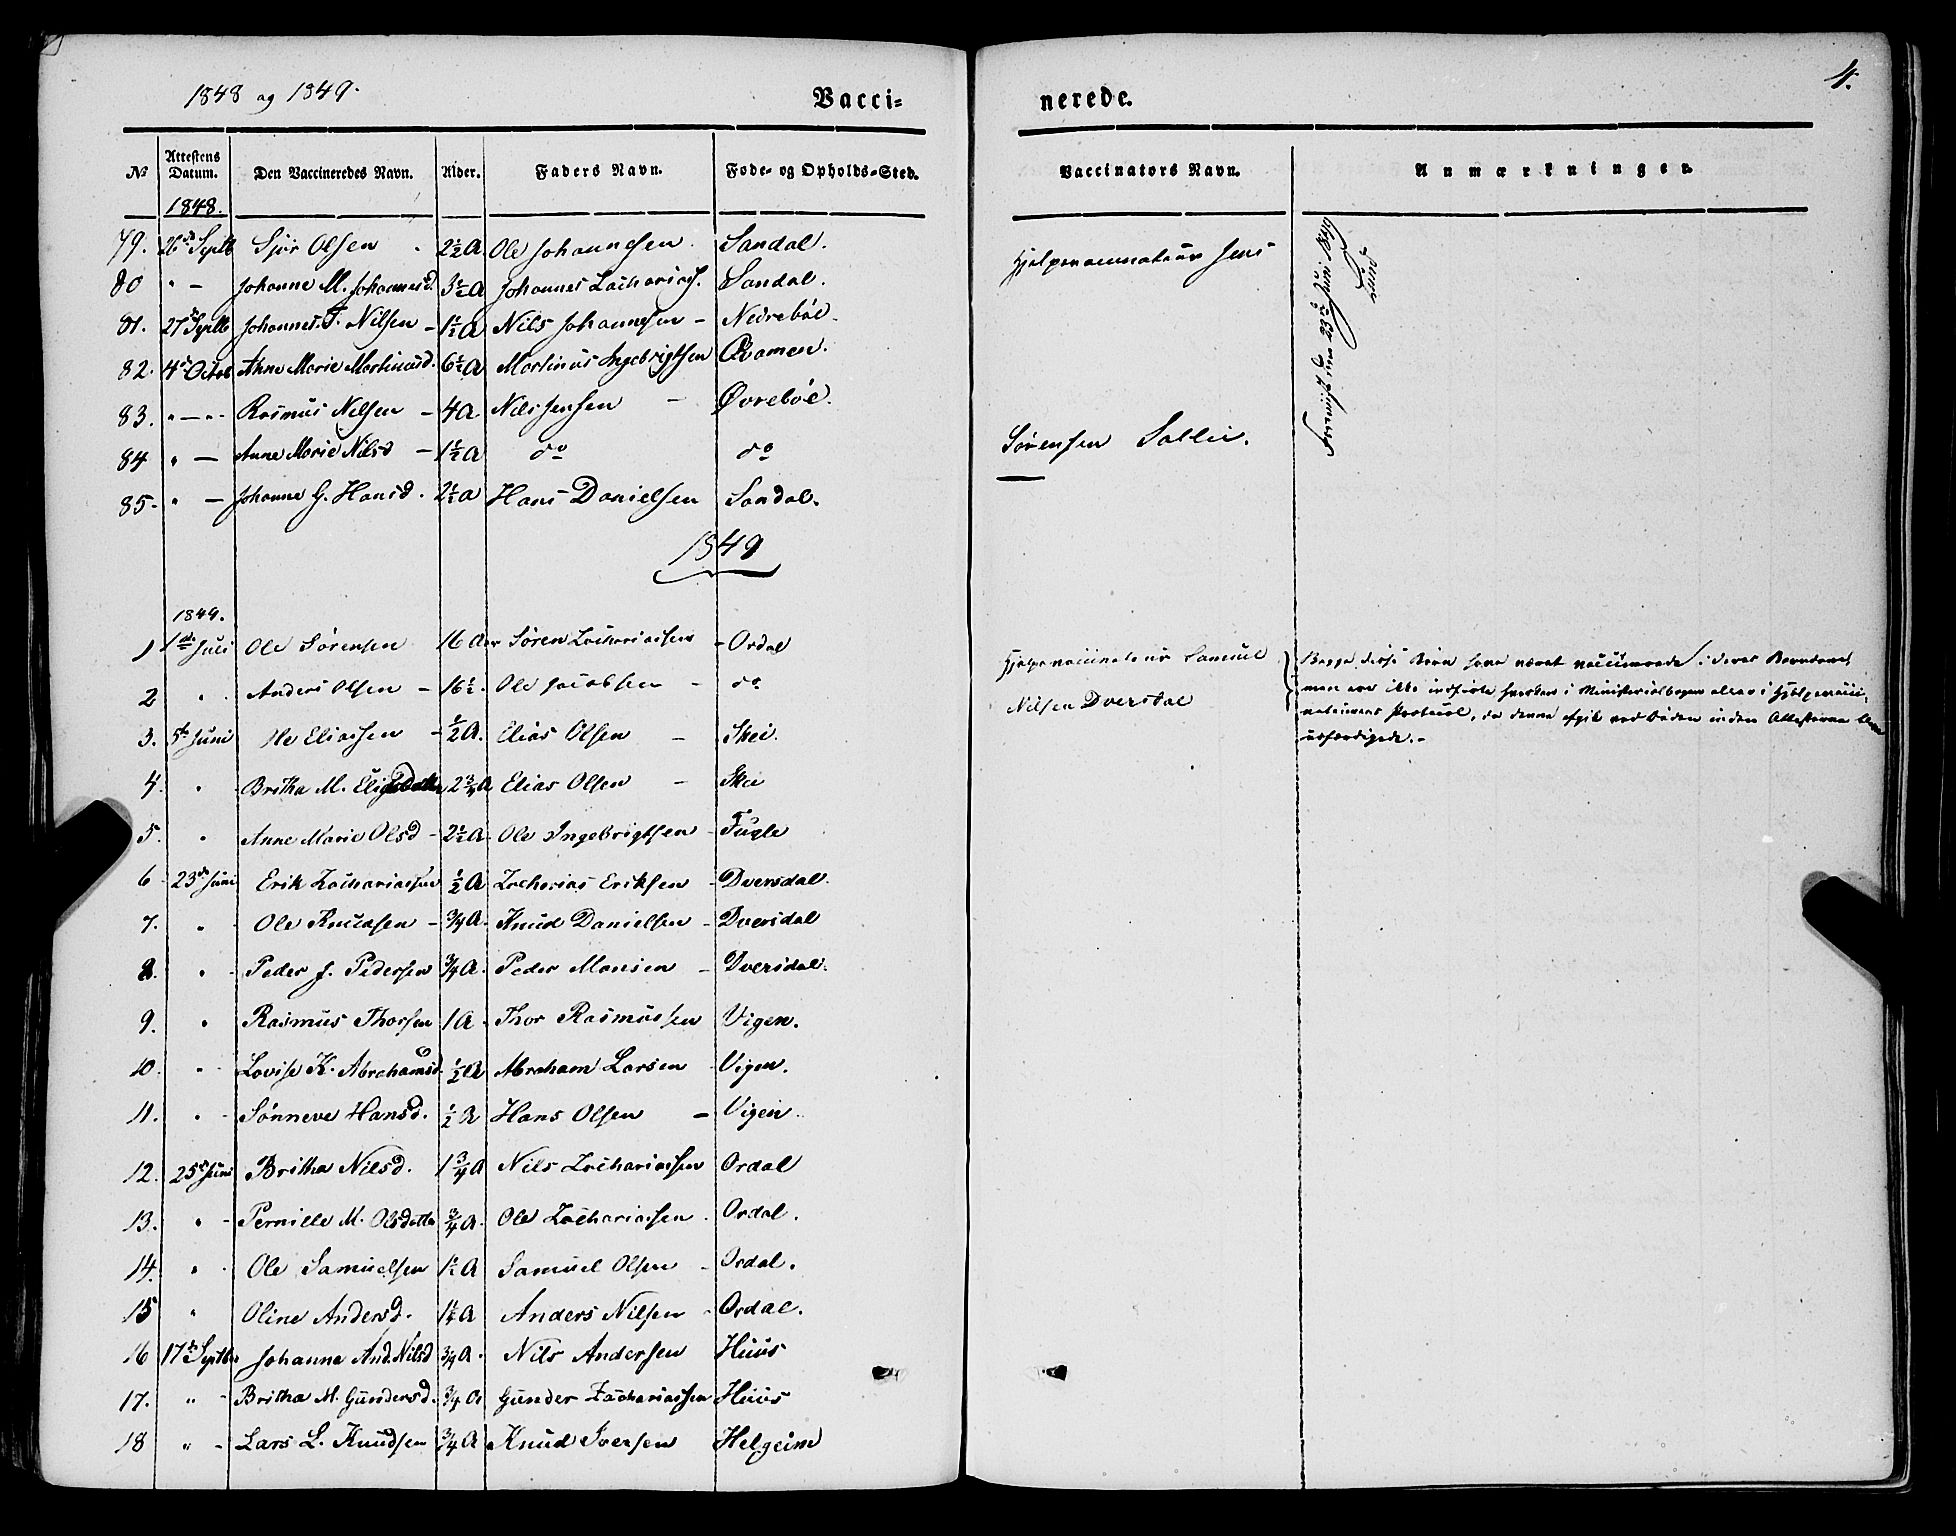 1848 og 1849.
Vacci=
nerede.
4.
No
Attestens Datum.
Den Vaccineredes Navn.
Alder.
Faders Navn.
Føde- og Opholds-Sted.
Vaccinators Navn.
Anmærkninger.
1848.
79. 26de Septb Sjur Olsen 2½ A Ole Johannesen Sandal.
80 " - Johanne M. Johannesd. 3½ A Johannes Zachariass. Sandal.
81. 27de Septb Johannes T. Nilsen - 1½ A Nils Johannesen - Nedrebøe.
82. 4de Octob Anne Marie Martinusd. 6½ A Martinus Ingebrigtsen Qvamen.
83. " - " - Rasmus Nilsen - 4 A Nils Jensen - Øvrebøe.
84 " - Anne Marie Nilsd - 1½ A do do
85 - " - Johanne G. Hansd. 2½ A Hans Danielsen Sandal.
Hjelpevaccinateur Jens
Sørensen Sollie.
23de Juni 1849
Lund
1849
1849.
1 1ste Juli Ole Sørensen 16 Aar Søren Zachariassen - Ordal
2 " Anders Olsen - 16½. Ole Jacobsen - do
3. 5te Juni Ole Eliassen - ½ A. Elias Olsen - Skei.
4. " Britha M. Eliasdatter 2¾ A Elias Olsen - Skei
5. " Anne Marie Olsd - 2½ A. Ole Ingebrigtsen - Fugle
6 23de Juni Erik Zachariassen ½ A Zacharias Eriksen - Dversdal.
7. " Ole Knudsen - ¾ A. Knud Danielsen - Dversdal
8. " Peder J. Pedersen ¾ A. Peder Monsen - Dversdal.
9. " Rasmus Thorsen 1 A. Thor Rasmussen Vigen.
10. " Lovise K. Abrahamsd. ½ A Abraham Larsen Vigen.
11. " - Sønneve Hansd. ½ A Hans Olsen - Vigen.
12. 25de Juni Britha Nilsd. 1¾ A Nils Zachariassen Ordal
13. " - Pernille M. Olsdatter ¾ A. Ole Zachariassen. Ordal.
14. " Ole Samuelsen 1½ A Samuel Olsen - Ordal.
15 " Oline Andersd. 1¼ A Anders Nilsen - Ordal.
16 17de Septbr Johanne And. Nilsd ¾ A. Nils Andersen Huus
17. " - Britha M. Gundersd. ¾ A Gunder Zachariassen Huus
18 " - Lars L. Knudsen ¾ A Knud Iversen Helgeim
Hjelpevaccinateur Samuel
Nilsen Dversdal
Begge disse Børn have været vaccinerede i deres Barndom,
men ere ikke indførte hverken i Ministerialbogen eller i Hjelpevacci-
nateurens Protocol, da denne afgik ved Døden inden Attesterne bleve
udfærdigede. -